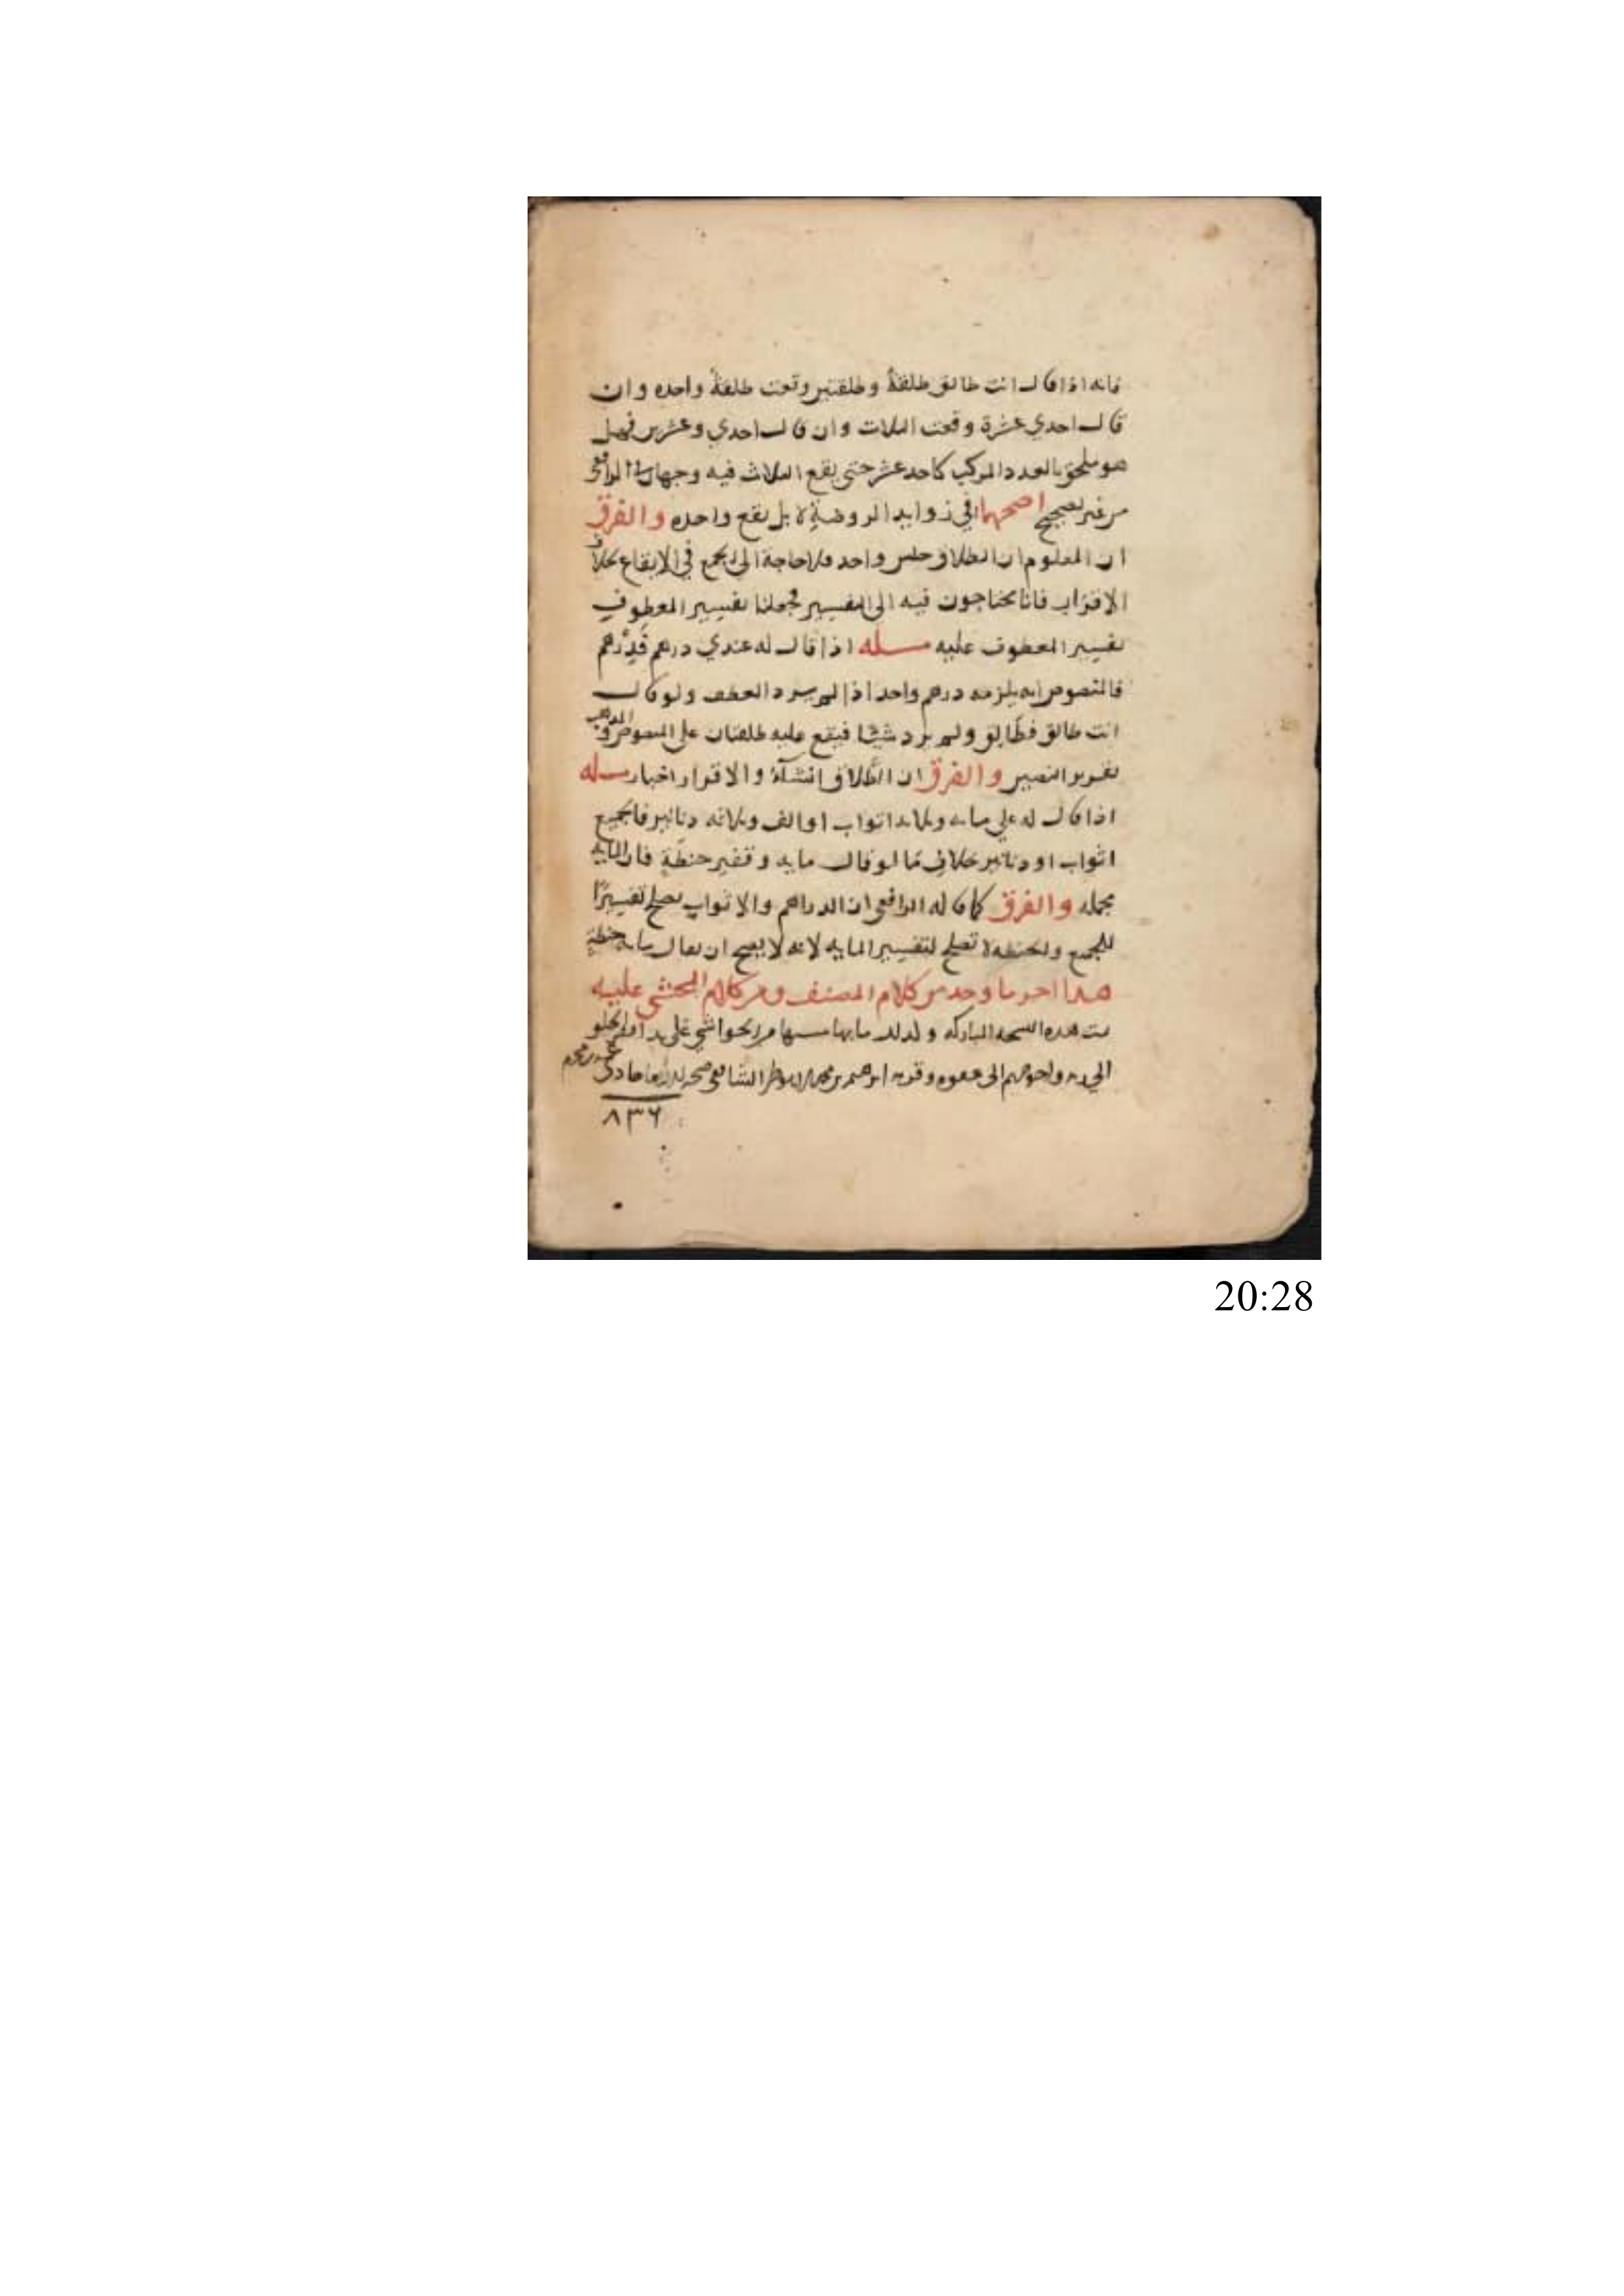 فانه اذا قال انت طالق طلقةً وطلقتين وقعت طلقةً واحده وان
قال احدي عشرة وقعت الثلاث وان قال احدي وعشرين فهل
هو ملحق بالعدد المركب كاحد عشر حتى يقع الثلاث فيه وجهان الرافعي
من غير تصحيح اصحهما في زوايد الروضةِ لا بل يقع واحده والفرق
ان المعلوم ان الطلاق جنس واحد فلا حاجة الى الجمع في الايقاع بخلاف
الاقرار فانا نحتاجون فيه الى التفسير فجعلنا تفسير المعطوف
تفسير المعطوف عليه مسله اذا قال له عندي درهم فدرهم
فالمنصوص انه يلزمه درهم واحد اذا لم يرد العطف ولو قال
انت طالق فطالق ولم يرد شيئًا فيقع عليه طلقتان على المنصوص والمذهب
تقرير النصين والفرق ان الطلاق انشآءٌ والاقرار اخبار مسله
اذا قال له علي مايه وثلاثه اثواب او الف وثلاثه دنانير فالجميع
اثواب او دنانير خلاف ما لو قال مايه وقفيز حنطةٍ فان المايه
مجمله والفرق كما قاله الرافعي ان الدراهم والاثواب تصلح تفسيرًا
للجميع والحنطه لا تصلح لتفسير المايه لانه لا يصح ان يقال مايه حنطةٍ
هذا اخر ما وجد من كلام المصنف ومن كلام المحشي عليه
تمت هذه النسخه المباركه وكذلك ما بهامشها من الحواشي على يد افقر الخلق
الى واحوجهم الى عفوه ابرهيم بن محمد الشافعي
٨٣٦
20:28